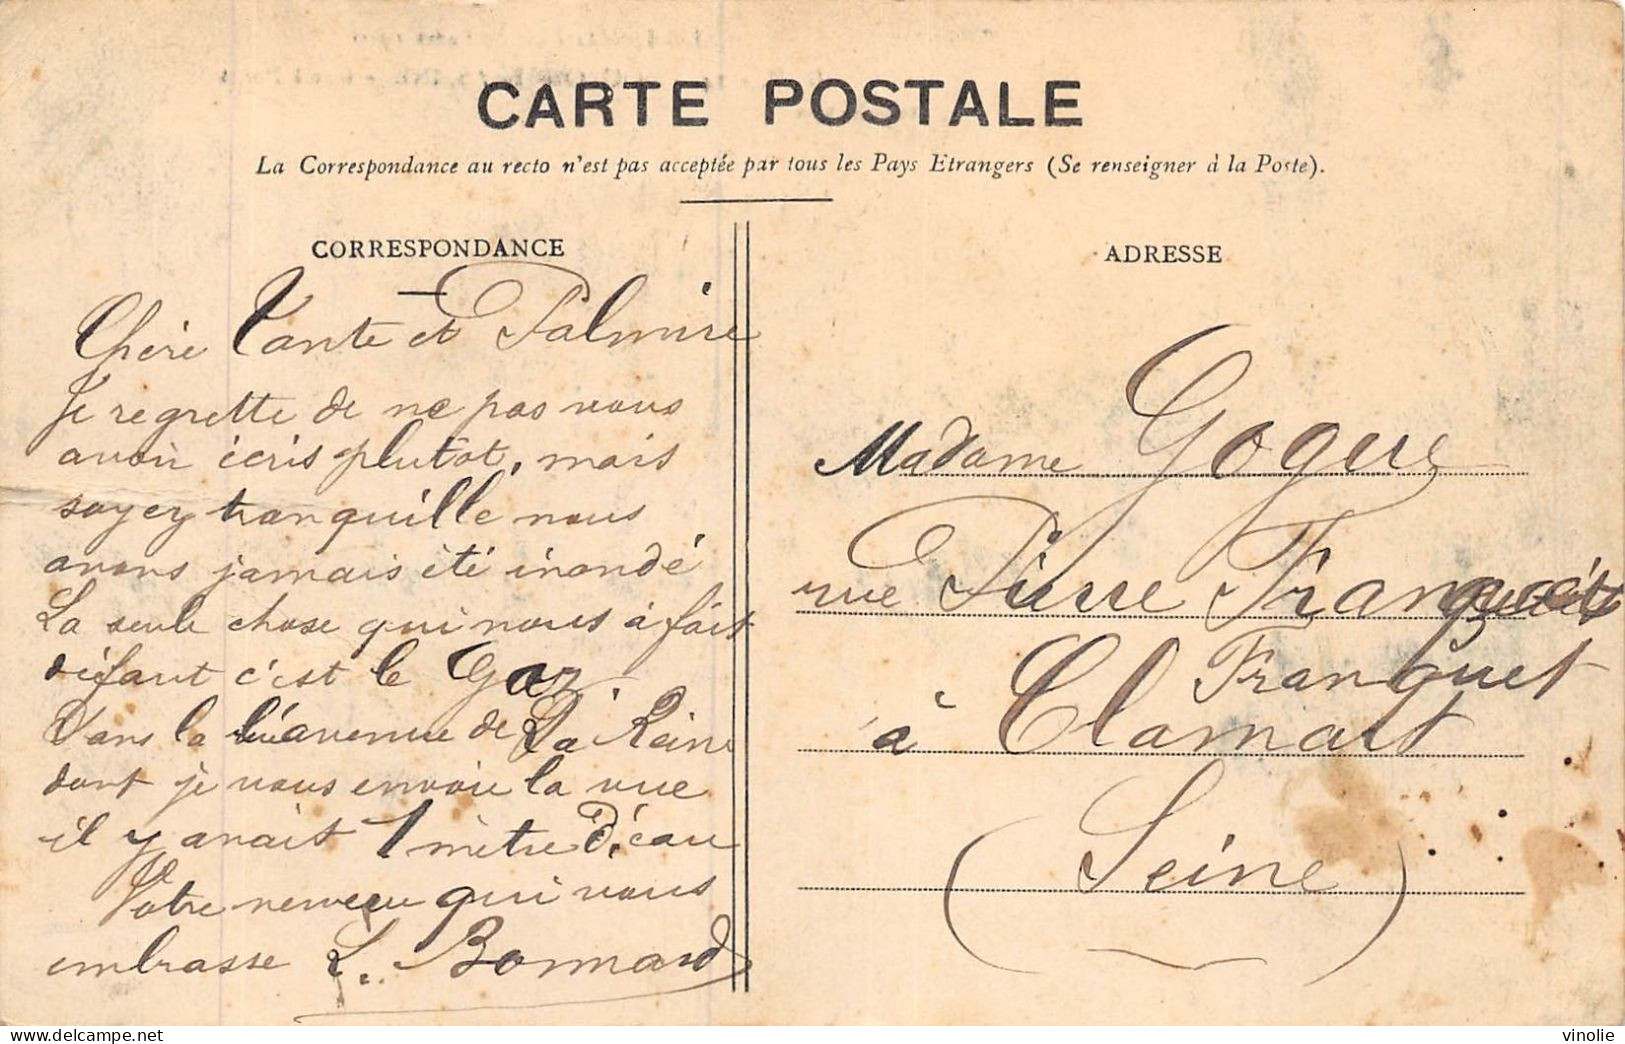 CARTE POSTALE
La Correspondance au recto n'est pas acceptée par tous les Pays Etrangers (Se renseigner à la Poste).
CORRESPONDANCE
Chère Tante et Palmire
Je regrette de ne pas vous
avoir écris plutôt, mais
soyez tranquille nous
avons jamais été inondé
La seule chose qui nous à fait
défaut c'est le Gaz
Dans la l'avenue de La Reine
dont je vous envoie la vue
il y avait 1 mètre d'eau
Votre neveu qui vous
embrasse L. Bonnard
ADRESSE
Madame Gogue
rue Pierre Franquet
Franquet
à Clamart
(Seine)
vinolie